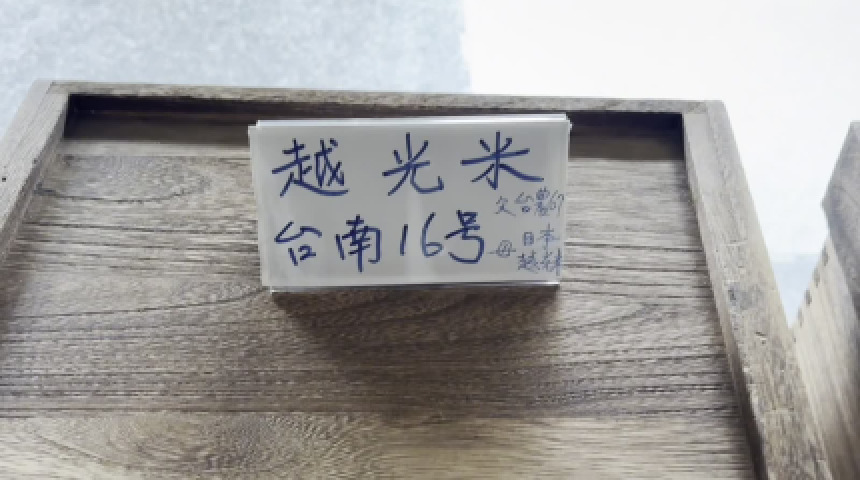 越光米
台南16号
父台農67
母日本
越光米